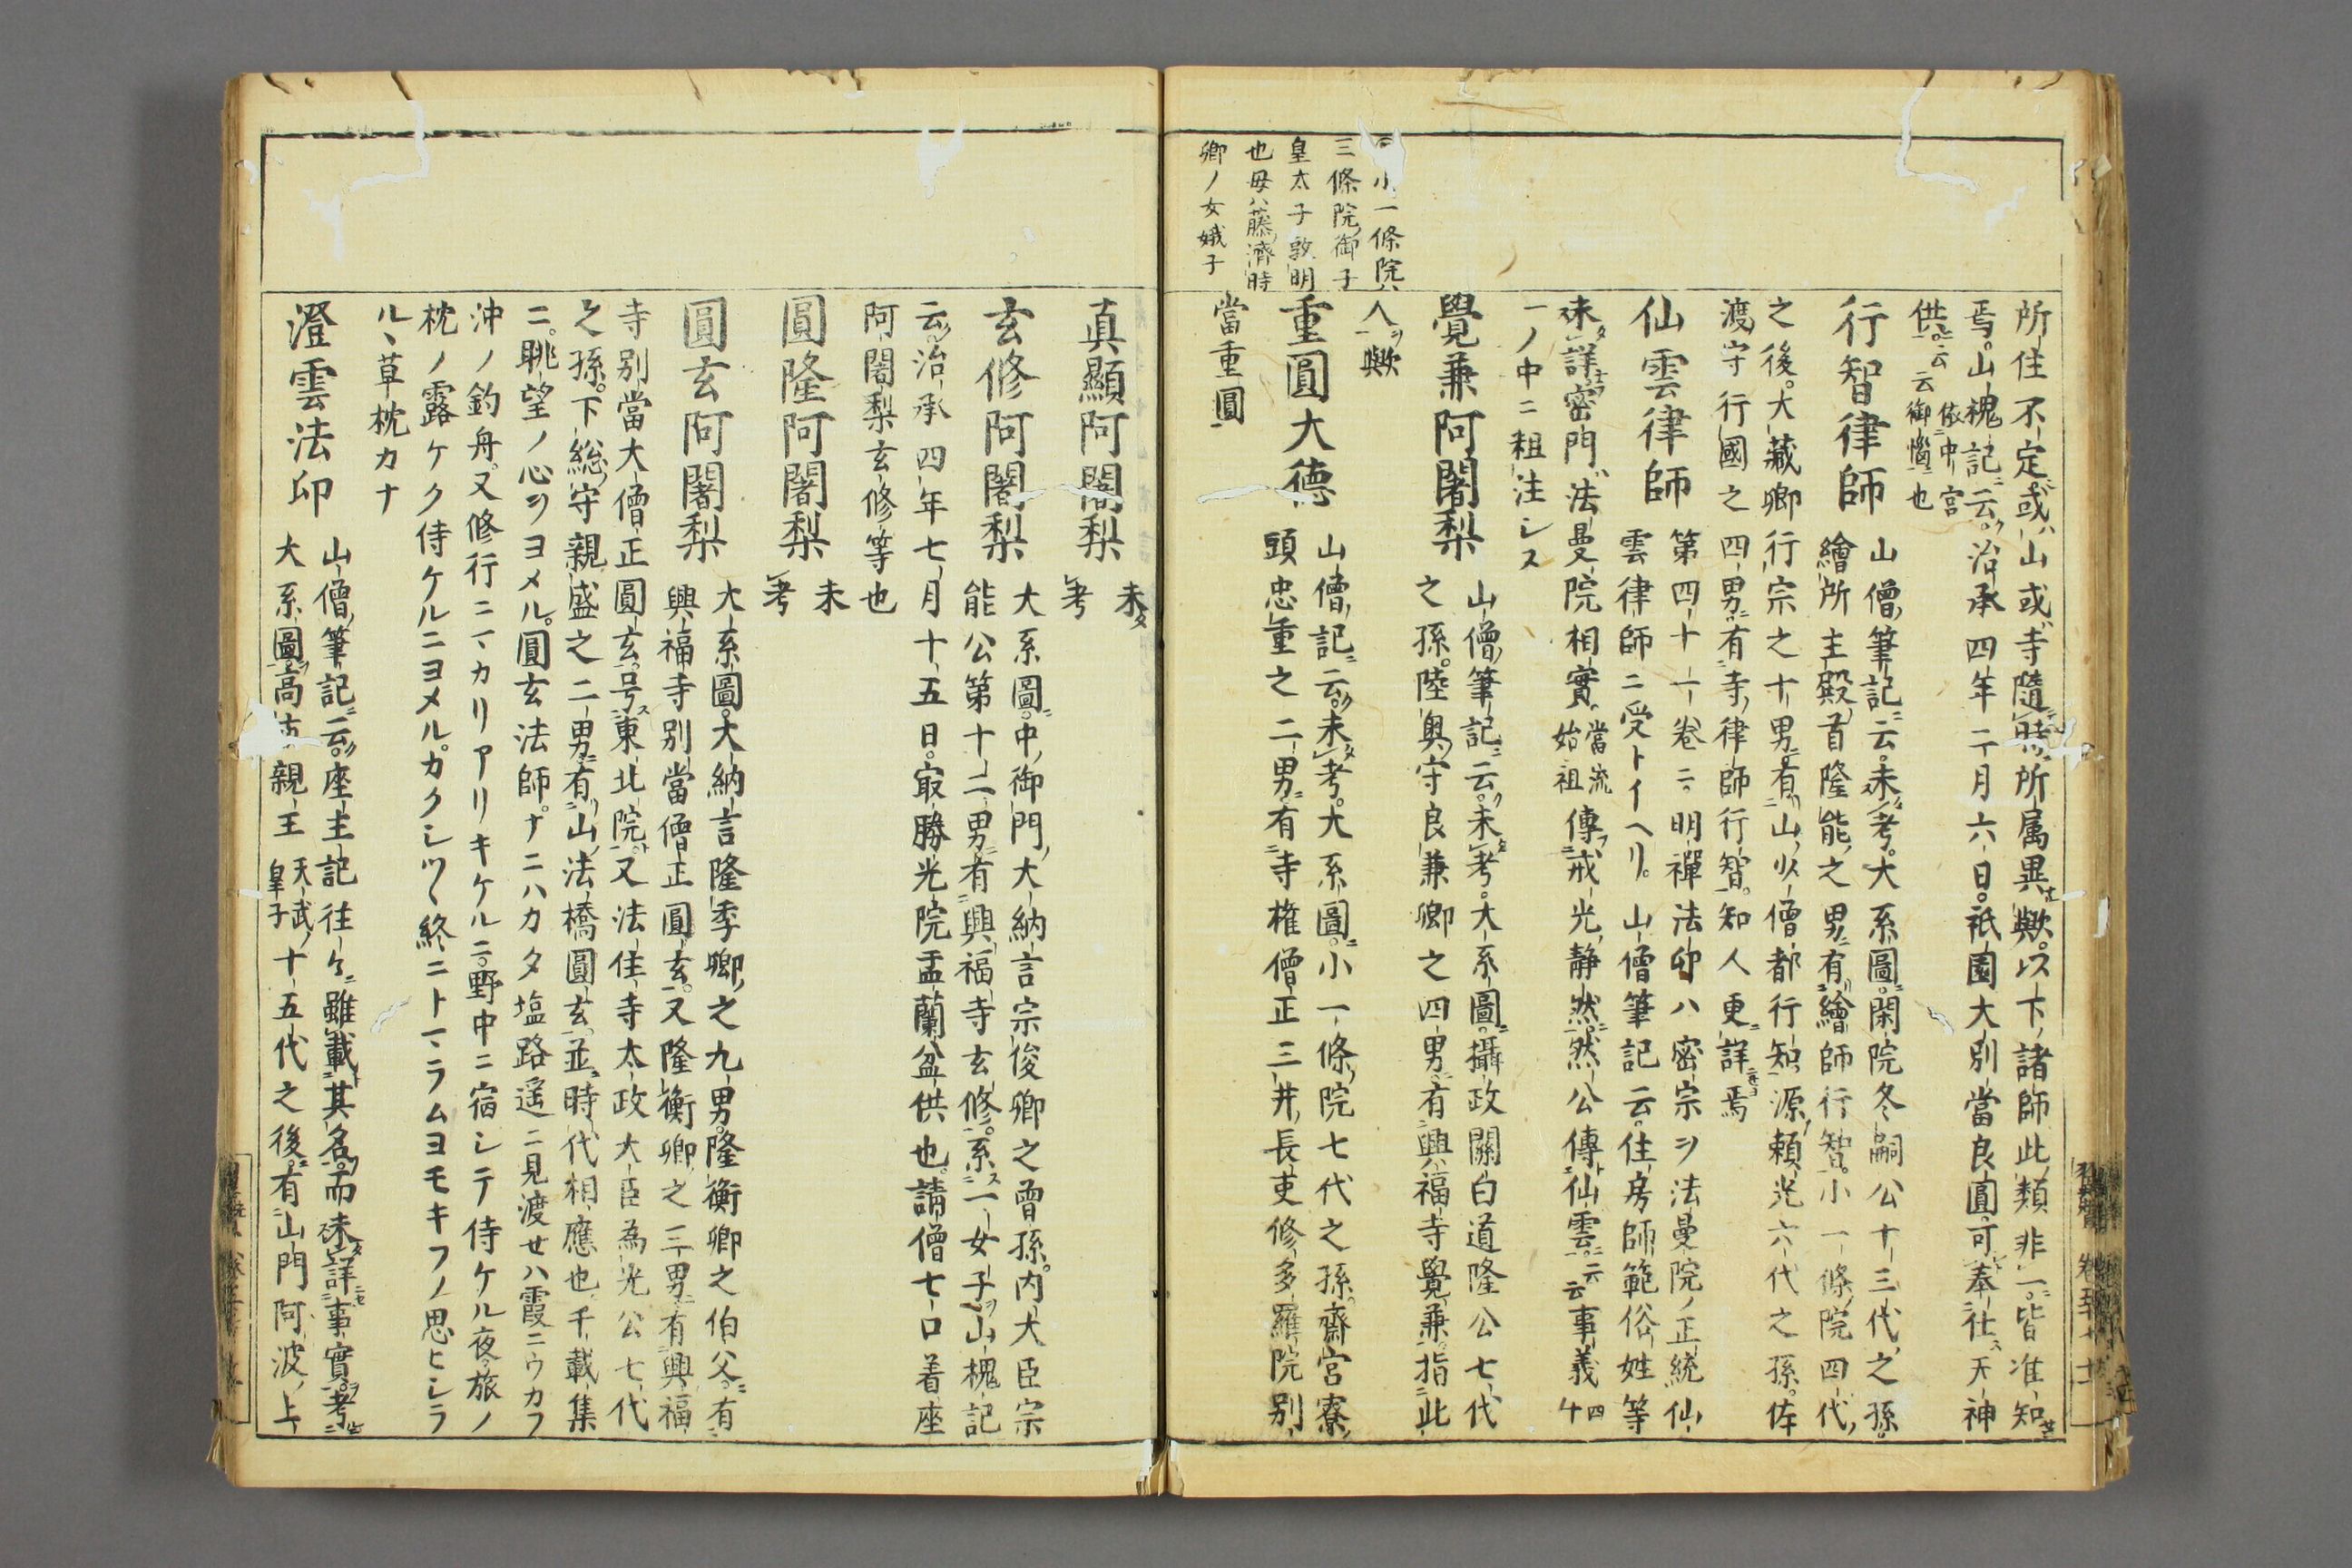 所住不定或ハ山或寺隨時所属異歟以下諸師此類非一皆准知
焉山槐記云治承四年二月六日祇園大別當良圓可奉仕天神
供云云依中宮御惱也
行智律師
山僧筆記云未考大系圖閑院冬嗣公十三代之孫
繪所主殿首隆能之男有繪師行智小一條院四代
之後大藏卿行宗之十男有山少僧都行知源頼光六代之孫佐
渡守行國之四男有寺律師行智知人更詳焉
仙雲律師
第四十一卷ニ明禪法印ハ密宗ヲ法曼院ノ正統仙
雲律師ニ受トイヘリ山僧筆記云住房師範俗姓等
未詳密門法曼院相實當流始祖傳戒光靜然然公傳仙雲云云事義四十
一ノ中ニ粗注レス
覺兼阿闍梨
山僧筆記云未考大系圖攝政關白道隆公七代
之孫陸奥守良兼卿之四男有興福寺覺兼指此
人歟
重圓大德
山僧記云未考大系圖小一條院七代之孫齋宮寮
頭忠重之二男有寺権僧正三井長吏修多羅院別
當重圓
小一條院ハ
三條院御子
皇太子敦明
也毋ハ藤濟時
卿ノ女娀子
真顯阿闍梨
未考
玄修阿闍梨
大系圖中御門大納言宗俊卿之曾孫内大臣宗
能公第十二男有興福寺玄修系一女子山槐記
云治承四年七月十五日㝡勝光院盂蘭盆供也請僧七口着座
阿闍梨玄修等也
圓隆阿闍梨
未考
圓玄阿闍梨
大系圖大納言隆季卿之九男隆衡卿之伯父有
興福寺別當僧正圓玄又隆衡卿之三男有興福
寺別當大僧正圓玄号東北院又法住寺太政大臣為光公七代
之孫下総守親盛之二男有山法橋圓玄並時代相應也千載集
ニ眺望ノ心ヲヨメル圓玄法師ナニハカタ塩路遥ニ見渡セハ霞ニウカフ
沖ノ釣舟又修行ニマカリアリキケルニ野中ニ宿シテ侍ケル夜旅ノ
枕ノ露ケク侍ケルニヨメルカクシツヽ終ニトマラムヨモキフノ思ヒシラ
ルヽ草枕カナ
澄雲法印
山僧筆記云座主記往々雖載其名而未詳事實考
大系圖高市親王天武皇子十五代之後有山門阿波上